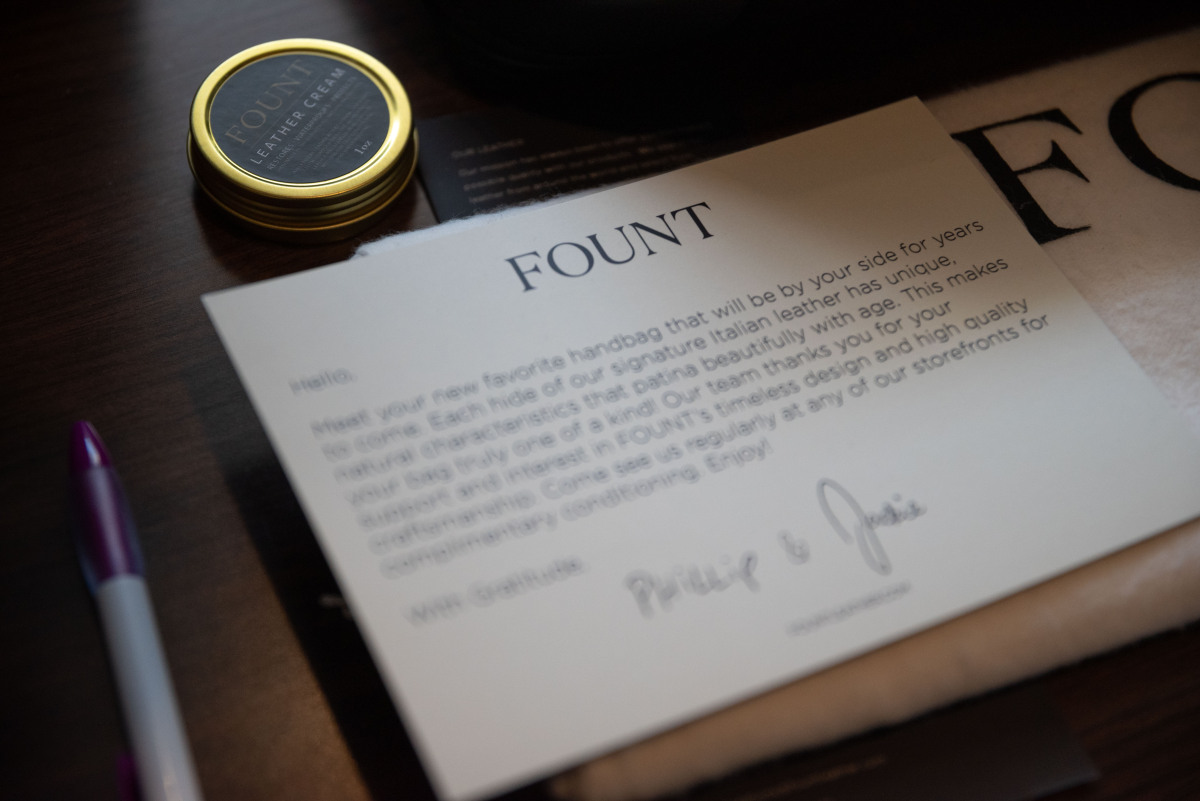 FOUNT
LEATHER CREAM
1oz
OUR LEATHER
FO
FOUNT
Hello,
Meet your new favorite handbag that will be by your side for years
to come. Each hide of our signature Italian leather has unique,
natural characteristics that patina beautifully with age. This makes
your bag truly one of a kind! Our team thanks you for your
support and interest in FOUNT's timeless design and high quality
craftsmanship. Come see us regularly at any of our storefronts for
complimentary conditioning. Enjoy!
With Gratitude,
Phillip & Jackie